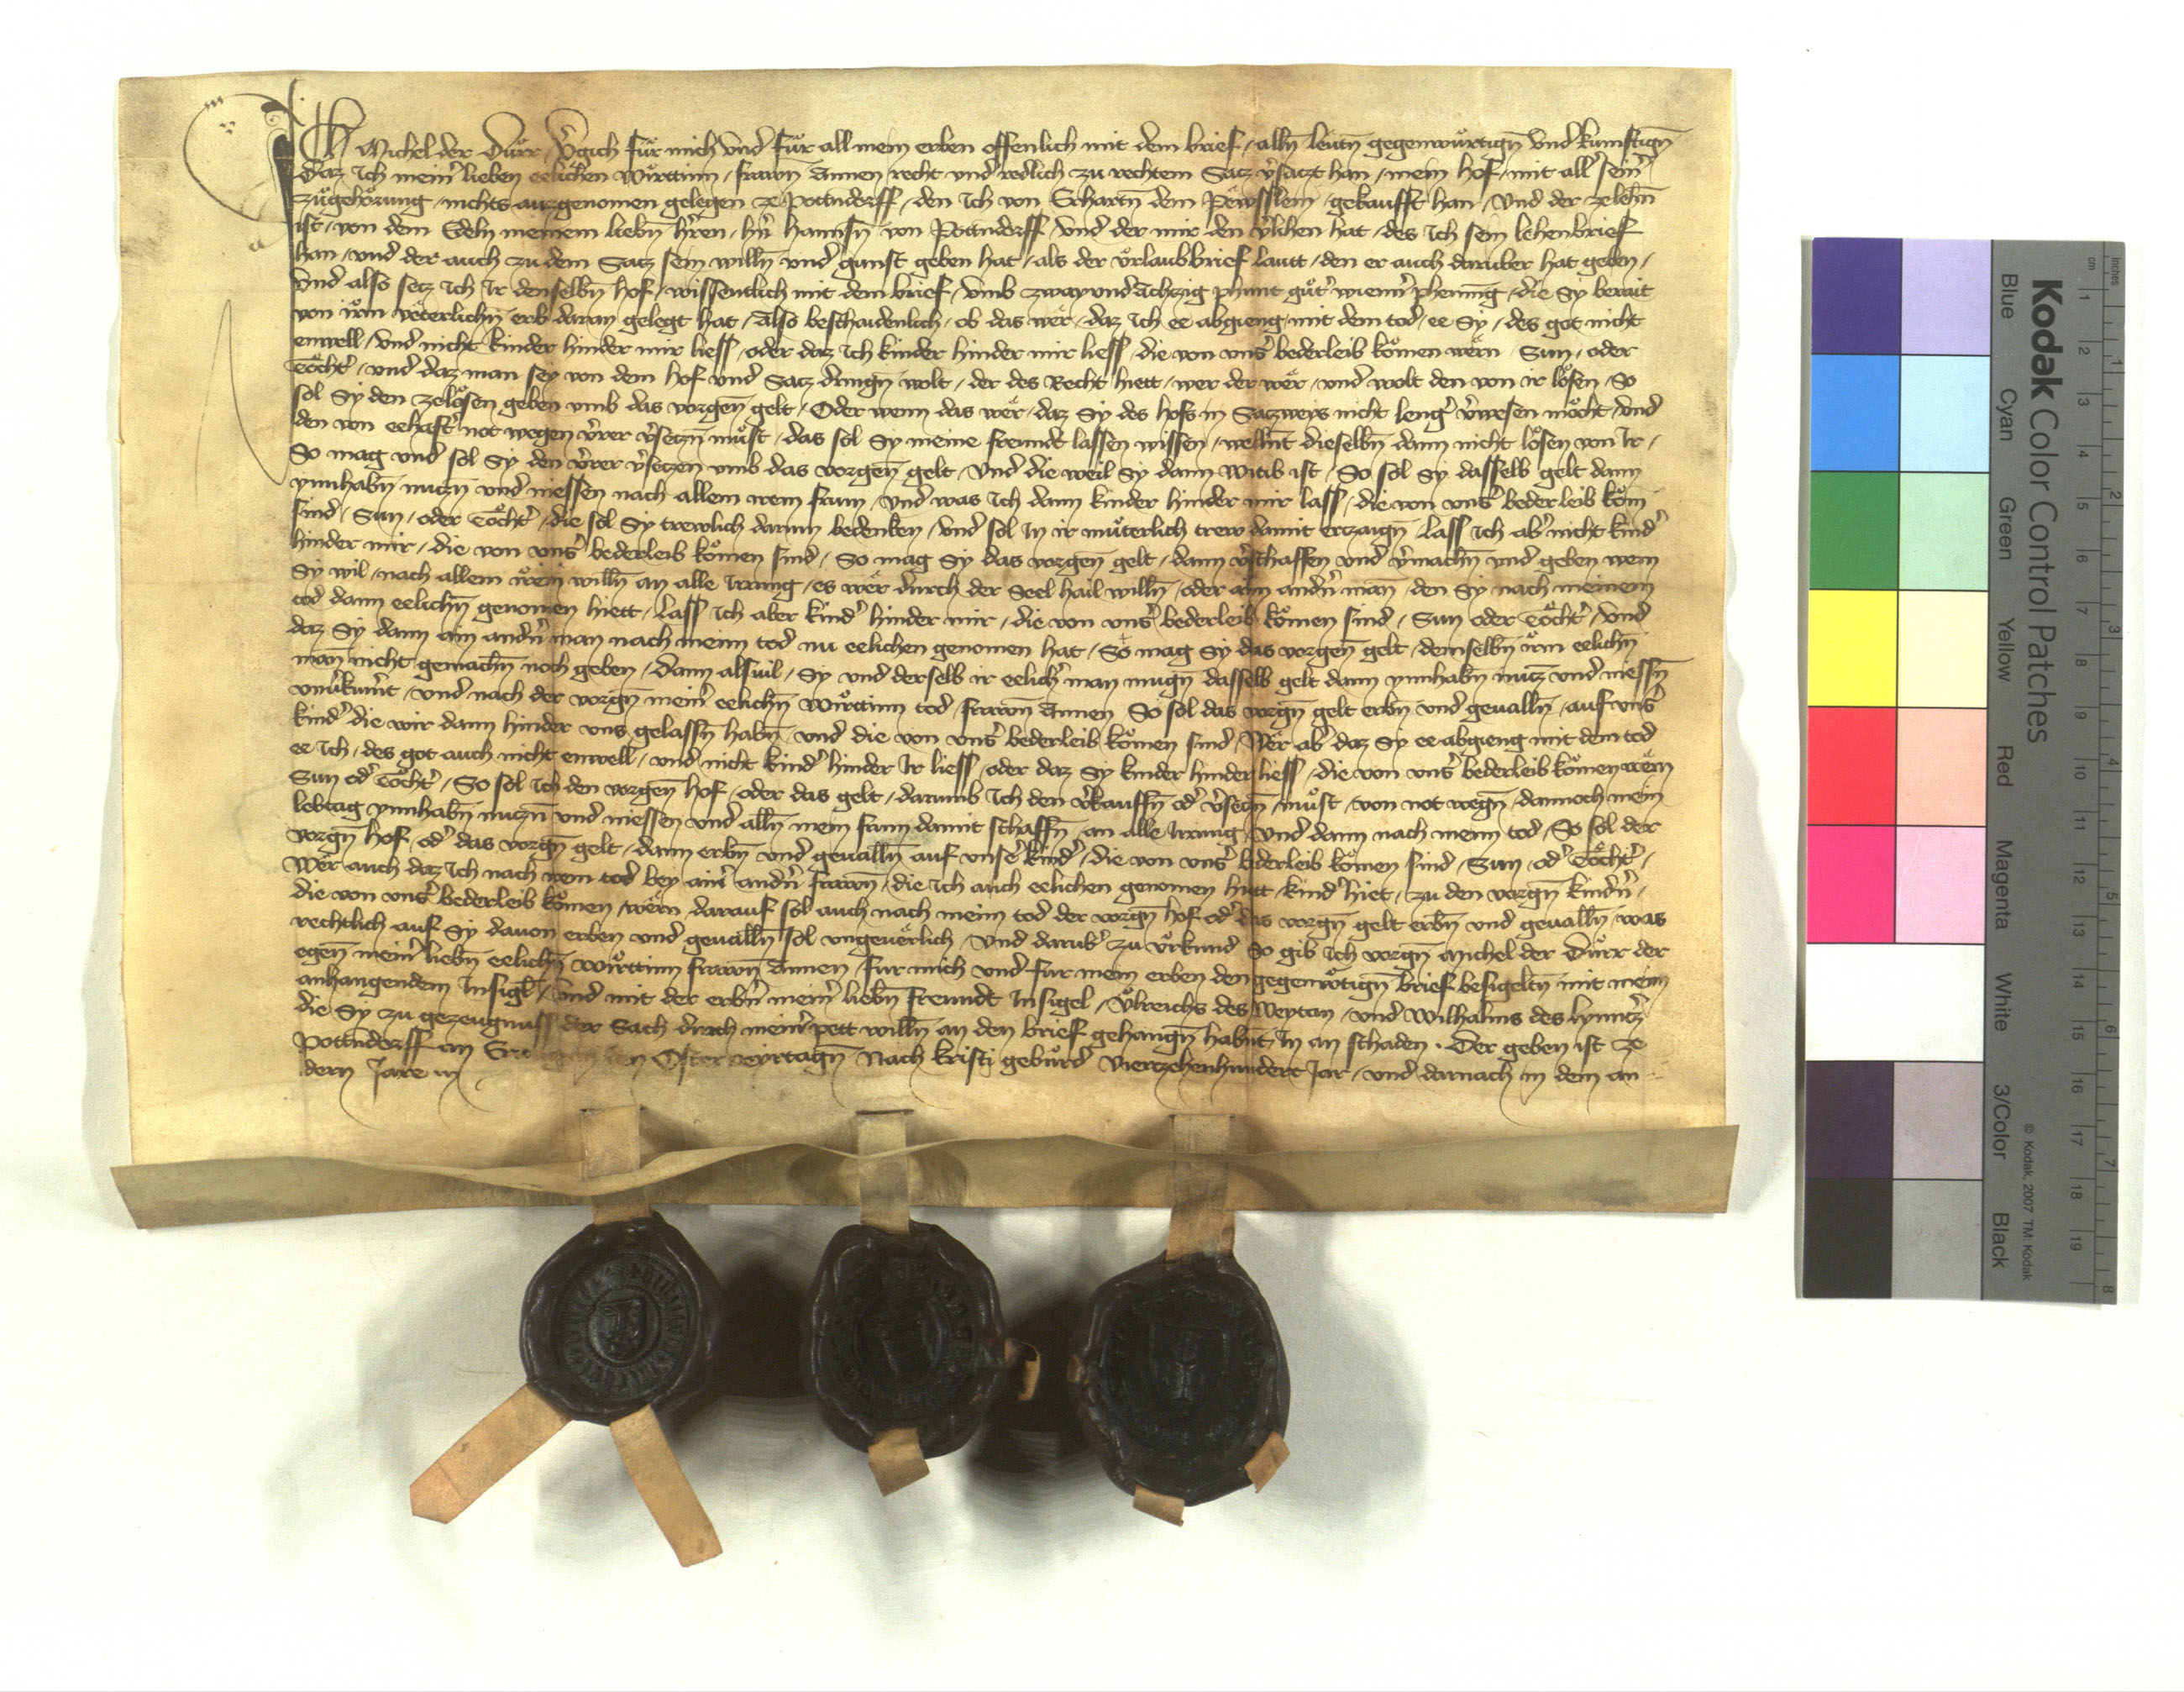 Ich Michel der Dürr v̾gich für mich vnd für all mein erben offenlich mit dem brief / alln̄ leütn̄ gegenwürtign̄ vnd kunftign̄
Daz ich mein̾ lieben eelichen württinn / frawn̄ Annen recht vnd redlich zu rechtem Satz v̾satzt han / mein hof / mit all sein̾
zůgehörung / nichts auzgenomen gelegen ze Pottndorff / den ich von Erhartn̄ dem / gekaufft han / vnd der zelehn̄
ist / von dem Edeln meinem liebn̄ h̾ren / hn̾ hannsn̄ von Pottndorff / vnd der mir den v̾lihen hat / des ich sein lehenbrief
han / vnd der auch zu dem Satz sein willn̄ vnd gunst geben hat / als der vrlaubbrief lautt / den er auch darüber hat geben /
vnd also setz ich Ir denselbn̄ hof / wissentlich mit dem brief / vmb zwayundachzig phunt gůt̾ wienn̾ phennig / die Sy berait
von irm veterlichn̄ erb daran gelegt hat / Also beschaidenlich / ob das wër / daz ich ee abgieng mit dem tod / ee Sy / des got nicht
enwell / vnd nicht kinder hinder mir liess / oder daz ich kinder hinder mir liess / die von vns̾ bederleib kömen wërn / Sun / oder
töcht̾ / vnd daz man sey von dem hof vnd Satz dringn̄ wolt / der des Recht hiett / wer der wër / vnd wolt den von ir lösen / So
sol Sy den zelösen geben vmb das vorgen̄ gelt / Oder wenn das wër / daz Sy des hofs in Satzweys nicht leng̾ v̾wesen möcht / vnd
den von eehaft̾ not wegen v̾rer v̾setzn̄ můst / das sol Sy meine freundt lassen wissen / welln̄t dieselbn̄ dann nicht lösen von Ir /
So mag vnd sol Sy den v̾rer v̾setzen vmb das vorgen̄ gelt / vnd die weil Sy dann witib ist / So sol Sy dasselb gelt dann
ynnhabn̄ nutzn̄ vnd niessen nach allem irem frum / vnd was ich dann kinder hinder mir lass / die von vns̾ bederleib kom̄
sind / Sun / oder töcht̾ / die sol Sy trewlich darinn bedenken / vnd sol In ir můterlich trew damit ertzaign̄ / Lass ich ab̾ nicht kind̾
hinder mir / die von vns̾ bederleib kömen sind / So mag Sy das vorgen̄ gelt / dann v̾schaffen vnd v̾machn̄ vnd geben wem
Sy wil / nach allem irem willn̄ an alle Irrung / es wër durch der Seel hail willn̄ / oder aim andn̾ man̄ / den Sy nach meinem
tod dann eelichn̄ genomen hiett / Lass ich aber kind̾ hinder mir / die von vns̾ bederleib kömen sind / Sun oder töcht̾ / vnd
daz Sy dann ain andn̾ man nach meim tod nu eelichen genomen hat / So mag Sy das vorgen̄ gelt / demselbn̄ irm eelichn̄
man̄ nicht gemachn̄ noch geben / dann alsuil / Sy vnd derselb ir eelich̾ man mugn̄ dasselb gelt dann ynnhabn̄ nutz vnd niessn̄
vnu̾kum̾t / vnd nach der vorgn̄ mein̾ eelichn̄ württinn tod / frawn Annen So sol das vorgn̄ gelt erbn̄ vnd geualln̄ / auf vns̾
kind̾ die wir dann hinder vns gelassn̄ habn̄ / vnd die von vns̾ bederleib kömen sind / Wër ab̾ daz Sy ee abgieng mit dem tod
ee ich / des got auch nicht enwell / vnd nicht kind̾ hinder Ir liess / oder daz Sy kinder hinder liess / die von vns̾ bederleib kömen wërn
Sun od̾ töcht̾ / So sol ich den vorgen̄ hof / oder das gelt / darumb ich den v̾kauffn̄ od̾ v̾setzn̄ můst / von not wegn̄ / dannoch mein
lebtag ynnhabn̄ nutzn̄ vnd niessen vnd alln̄ mein frum damit schaffn̄ / an alle Irrung / vnd dann nach meim tod / So sol der
vorgn̄ hof / od̾ das vorgn̄ gelt / dann erbn̄ vnd geualln̄ auf vnse̾ kind̾ / die von vns̾ bederleib kömen sind / Sun / od̾ töcht̾ /
Wër auch daz ich nach irem tod bey ain̾ andn̾ frawn̄ / die ich auch eelichen genomen hiett / kind̾ hiet / zu den vorgn̄ kindn̾ /
die von vns̾ bederleib kömen wërn / darauf sol auch nach meim tod der vorgn̄ hof od̾ das vorgn̄ gelt erbn̄ vnd geualln̄ / was
rechtlich auf Sy dauon erben vnd geualln̄ sol vngeuerlich / vnd darub̾ zu vrkund So gib ich vorgn̄ Michel der Dürr der
egen̄ mein̾ liebn̄ eelichn̄ württinn frawn̄ Annen / für mich vnd für mein erben den gegenwötign̄ brief besigeltn̄ mit meim
anhangendem Insigl̄ / vnd mit der erbn̾ mein̾ liebn̄ freundt Insigel / vlreichs des Weytan / vnd Wilhalms des
die Sy zu gezeugnuss der Sach durch mein̾ pett willn̄ an den brief gehangn̄ habnt / In an schaden . Der geben ist ze
Pottndorff an den Oster veyrtagn̄ Nach kristi geburd vierzehenhundert Jar / vnd darnach in dem an-
dern Jare
Kodak Color Control Patches
Blue Cyan Green Yellow Red Magenta White 3/Color Black
© Kodak, 2007 TM: Kodak
inches 1 2 3 4 5 6 7 8
cm 1 2 3 4 5 6 7 8 9 10 11 12 13 14 15 16 17 18 19